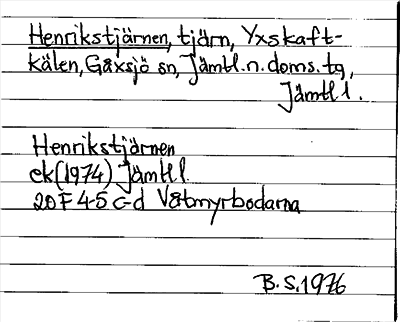 Henrikstjärnen, tjärn, Yxskaft-
kälen, Gåxsjö sn, Jämtl.n.doms.tg,
Jämtl l.
Henrikstjärnen
ek(1974) Jämtl l.
20F 4-5 c-d Våtmyrbodarna
B.S.1976